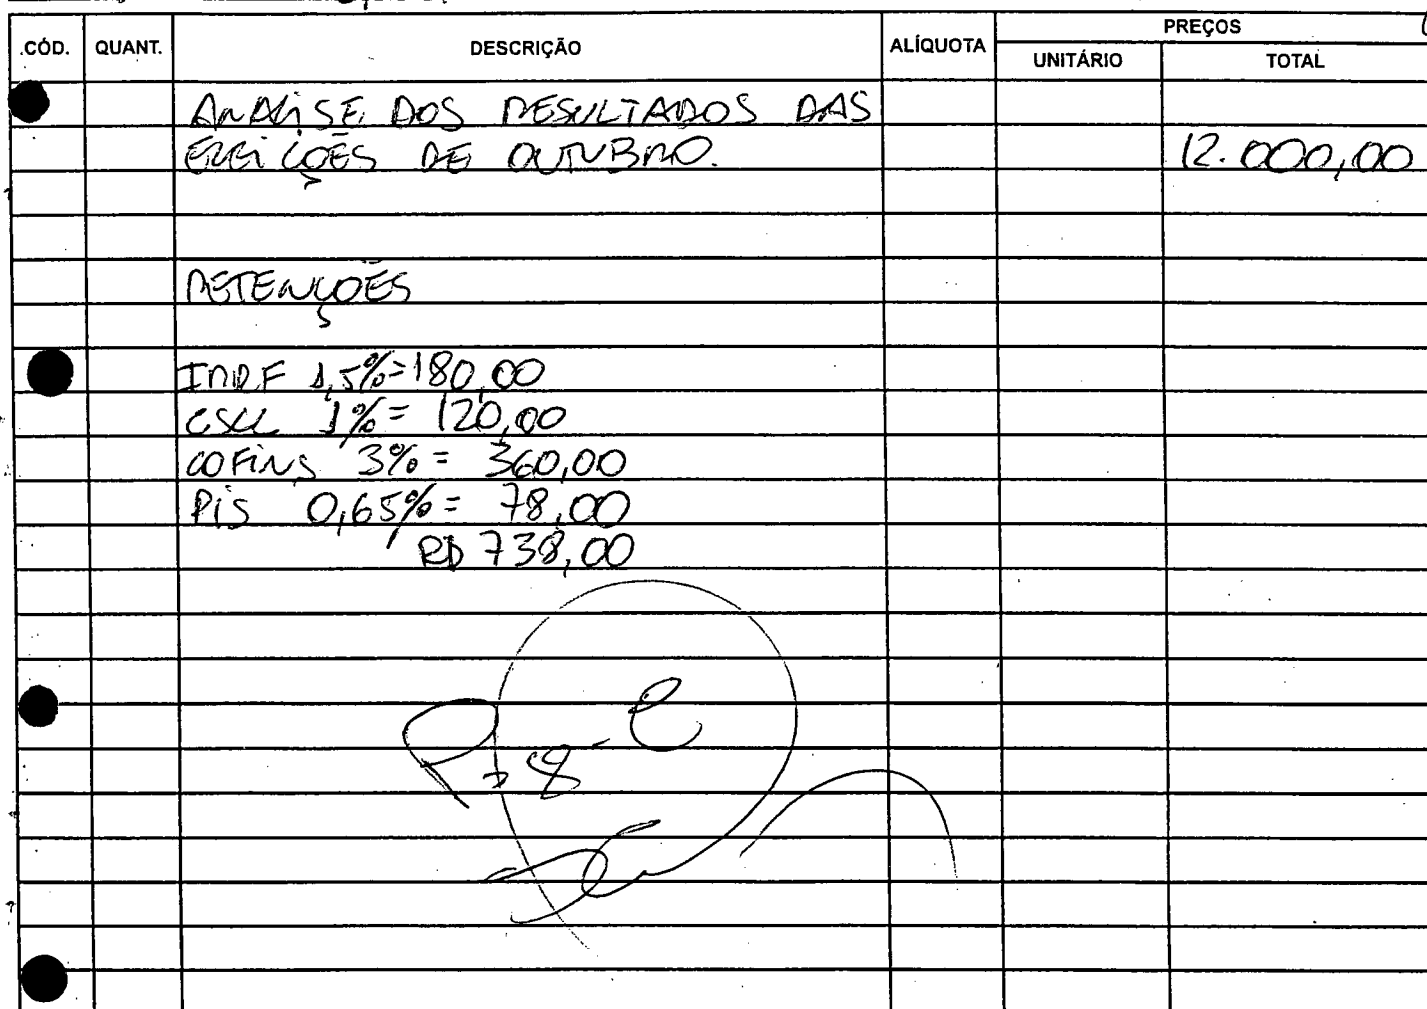 CÓD. QUANT. DESCRIÇÃO ALÍQUOTA PREÇOS
UNITÁRIO TOTAL
ANALISE DOS RESULTADOS DAS
ELEIÇÕES DE OUTUBRO. 12.000,00
RETENÇÕES
IRRF 1,5%=180,00
CSLL 1%= 120,00
COFINS 3%= 360,00
PIS 0,65%= 78,00
R$ 738,00